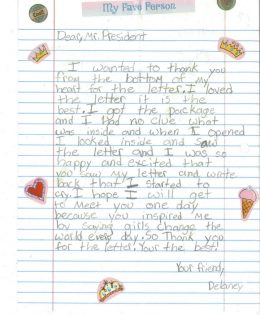 My Fave Person
Dear, Mr. President
I wanted to thank you
from the bottom of my
heart for the letter. I loved
the letter it is the
best. I got the package
and I had no clue what
was inside and when I opened
I looked inside and saw
the letter and I was so
happy and excited that
you saw my letter and wrote
back that I started to
cry. I hope I will get
to meet you one day
because you inspired me
by saying girls change the
world every day. So Thank you
for the letter. Your the best!
Your friend,
Delaney